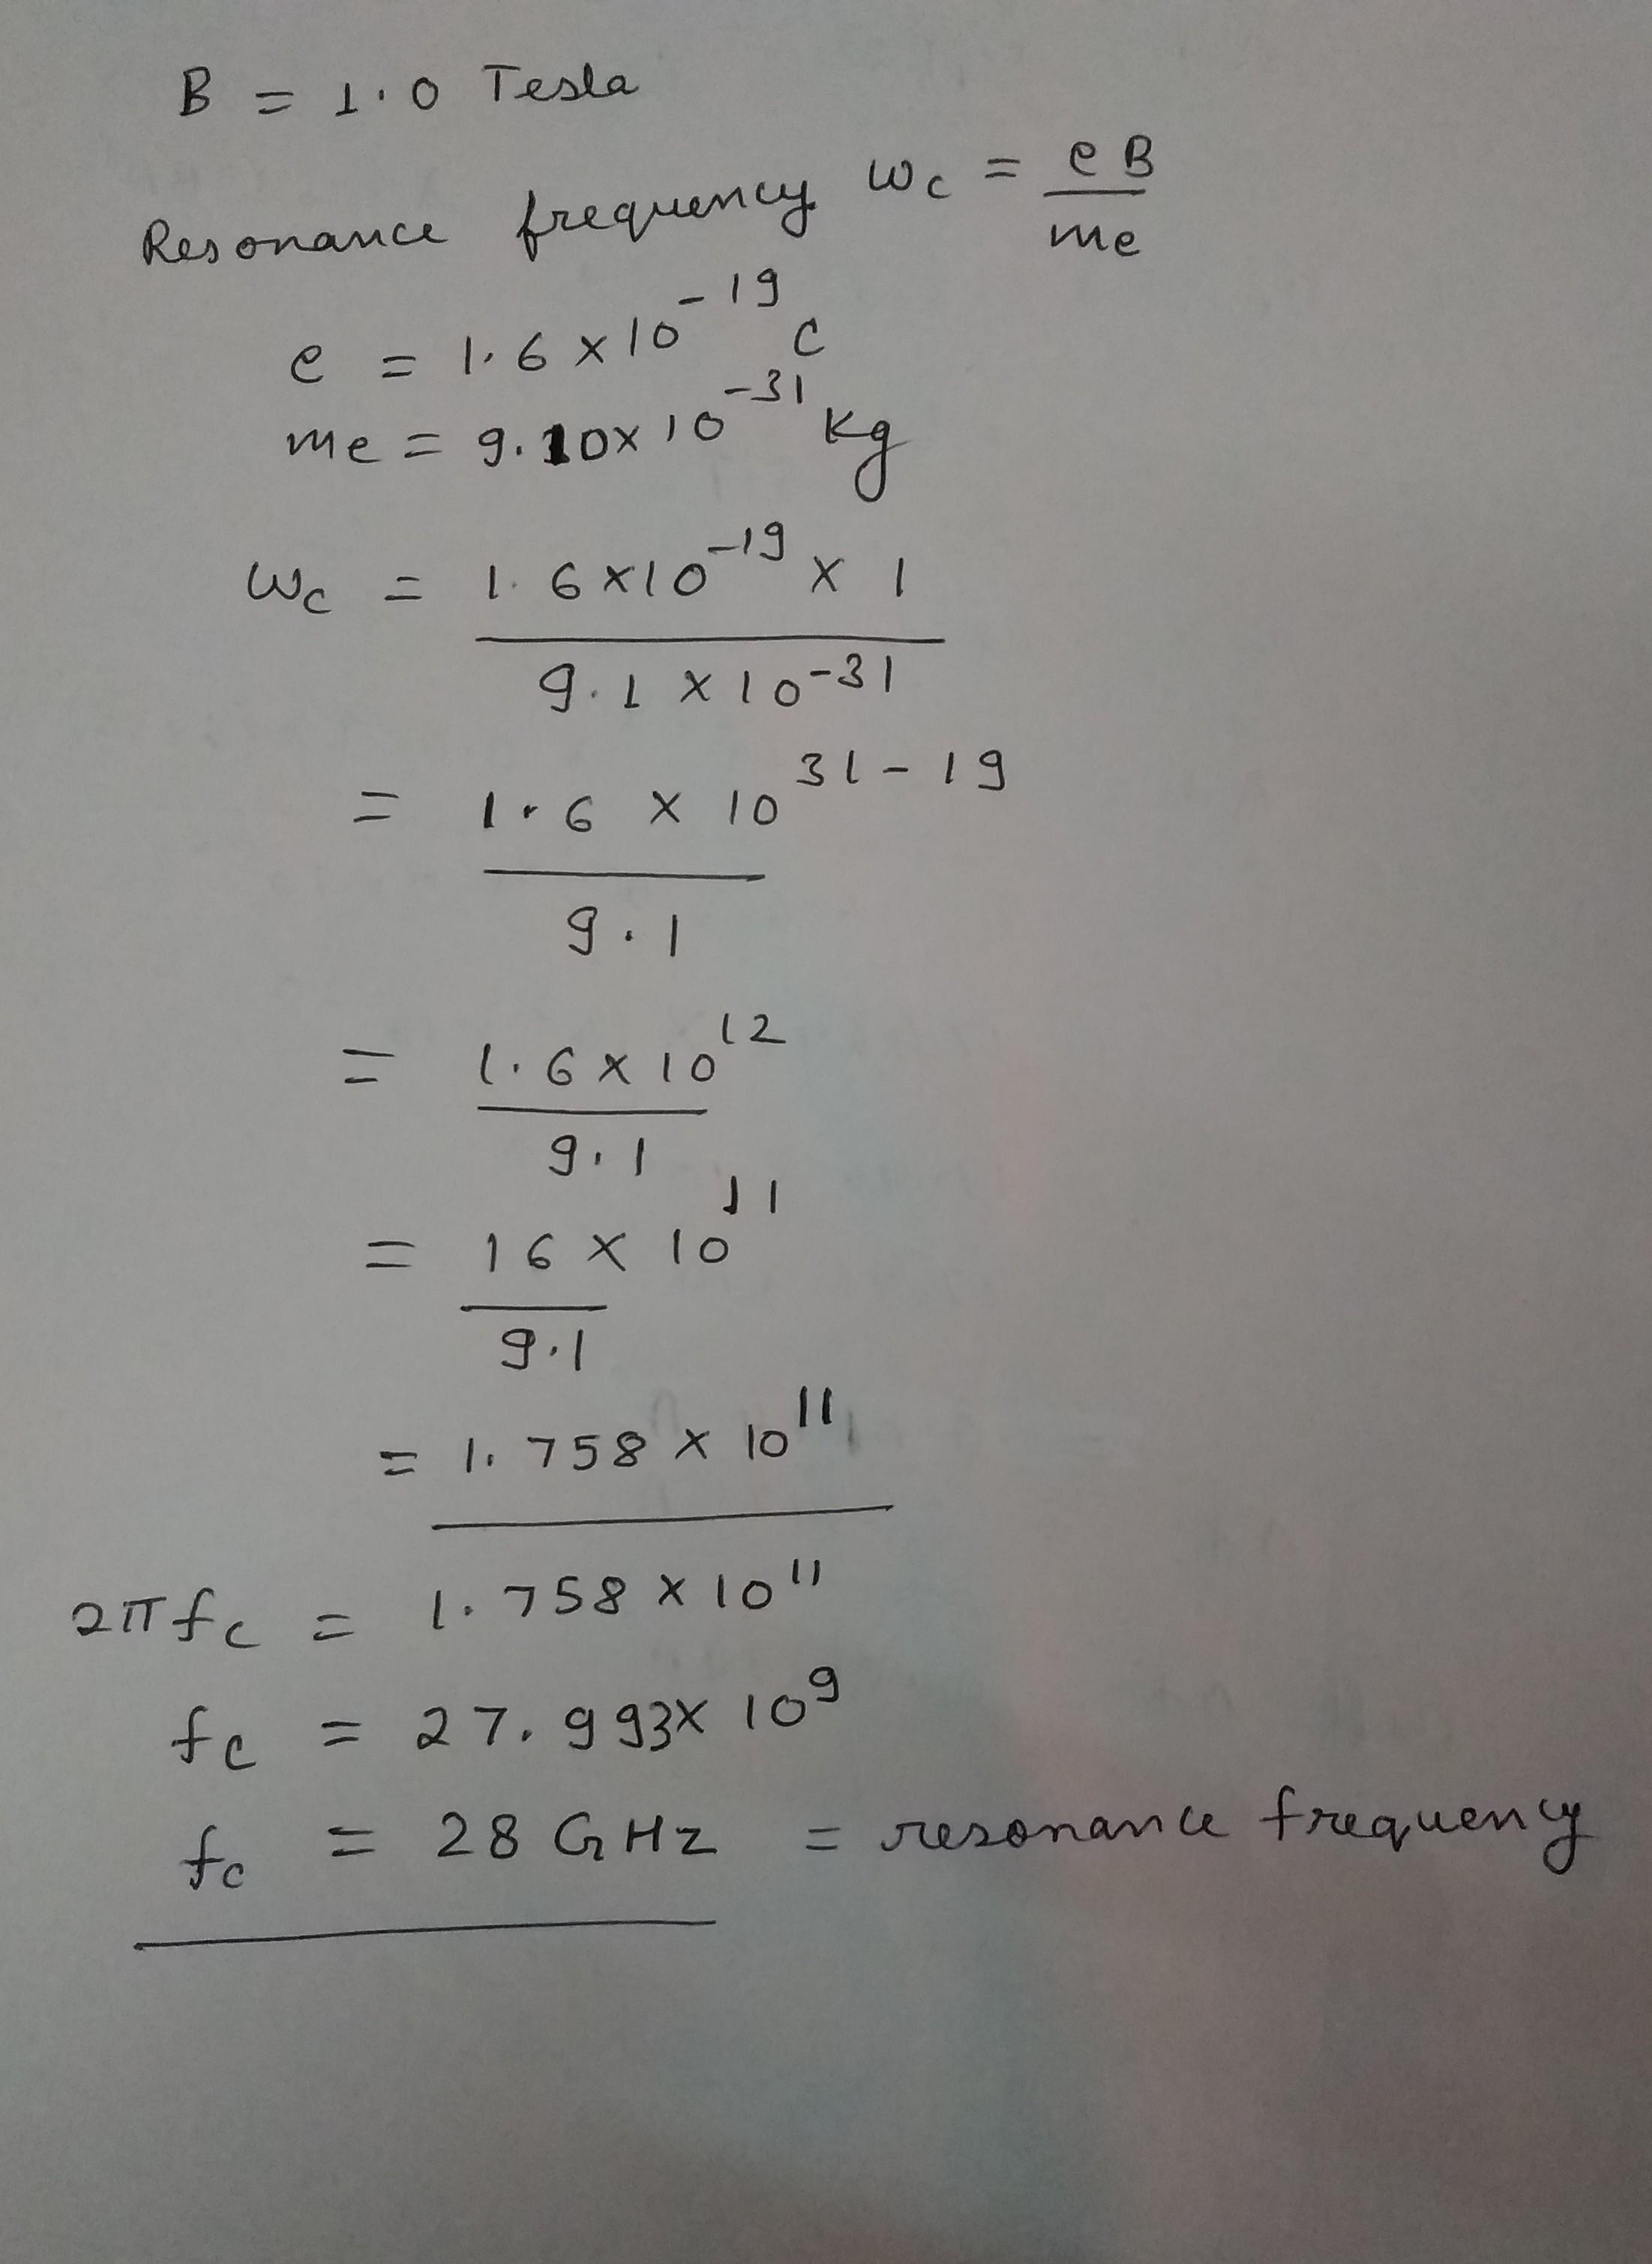 B = 1.0 Tesla
Resonance frequency ωc = eB
me
e = 1.6 × 10⁻¹⁹ C
me = 9.10 × 10⁻³¹ kg
ωc = 1.6 × 10⁻¹⁹ × 1
9.1 × 10⁻³¹
= 1.6 × 10³¹⁻¹⁹
9.1
= 1.6 × 10¹²
9.1
= 16 × 10¹¹
9.1
= 1.758 × 10¹¹
2πfc = 1.758 × 10¹¹
fc = 27.993 × 10⁹
fc = 28 GHz = resonance frequency